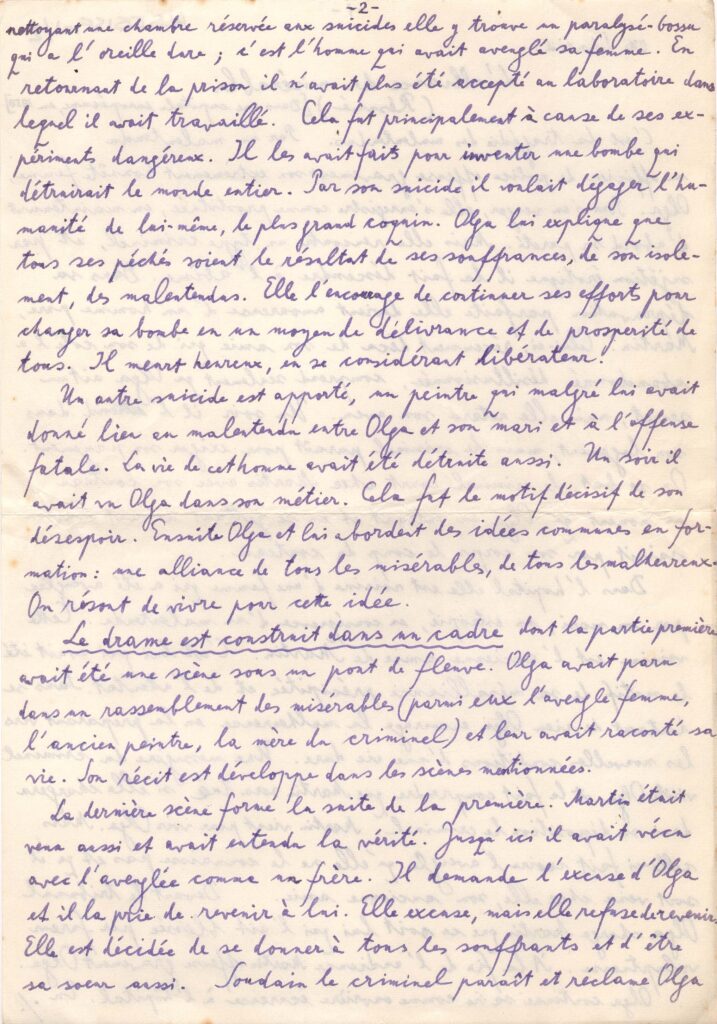 -2-
nettoyant une chambre réservée aux suicides elle y trouve un paralysé-bossu
qui a l'oreille dure ; c'est l'homme qui avait aveuglé sa femme. En
retournant de la prison il n'avait plus été accepté au laboratoire dans
lequel il avait travaillé. Cela fut principalement à cause de ses ex-
périments dangéreux. Il les avait faits pour inventer une bombe qui
détruirait le monde entier. Par son suicide il voulait dégager l'hu-
manité de lui-même, le plus grand coquin. Olga lui explique que
tous ses péchés soient le résultat de ses souffrances, de son isole-
ment, des malentendus. Elle l'encourage de continuer ses efforts pour
changer sa bombe en un moyen de délivrance et de prosperité de
tous. Il meurt heureux, en se considérant libérateur.
Un autre suicide est apporté, un peintre qui malgré lui avait
donné lieu au malentendu entre Olga et son mari et à l'offense
fatale. La vie de cet homme avait été détruite aussi. Un soir il
avait vu Olga dans son métier. Cela fut le motif décisif de son
désespoir. Ensuite Olga et lui abordent des idées communes en for-
mation : une alliance de tous les misérables, de tous les malheureux.
On résout de vivre pour cette idée.
Le drame est construit dans un cadre dont la partie première
avait été une scène sous un pont de fleuve. Olga avait paru
dans un rassemblement des misérables (parmi eux l'aveugle femme,
l'ancien peintre, la mère du criminel) et leur avait raconté sa
vie. Son récit est développe dans les scènes mentionnées.
La dernière scène forme la suite de la première. Martin était
venu aussi et avait entendu la vérité. Jusqu'ici il avait vécu
avec l'aveuglée comme un frère. Il demande l'excuse d'Olga
et il la prie de revenir à lui. Elle excuse, mais elle refuse de revenir.
Elle est décidée de se donner à tous les souffrants et d'être
sa soeur aussi. Soudain le criminel paraît et réclame Olga